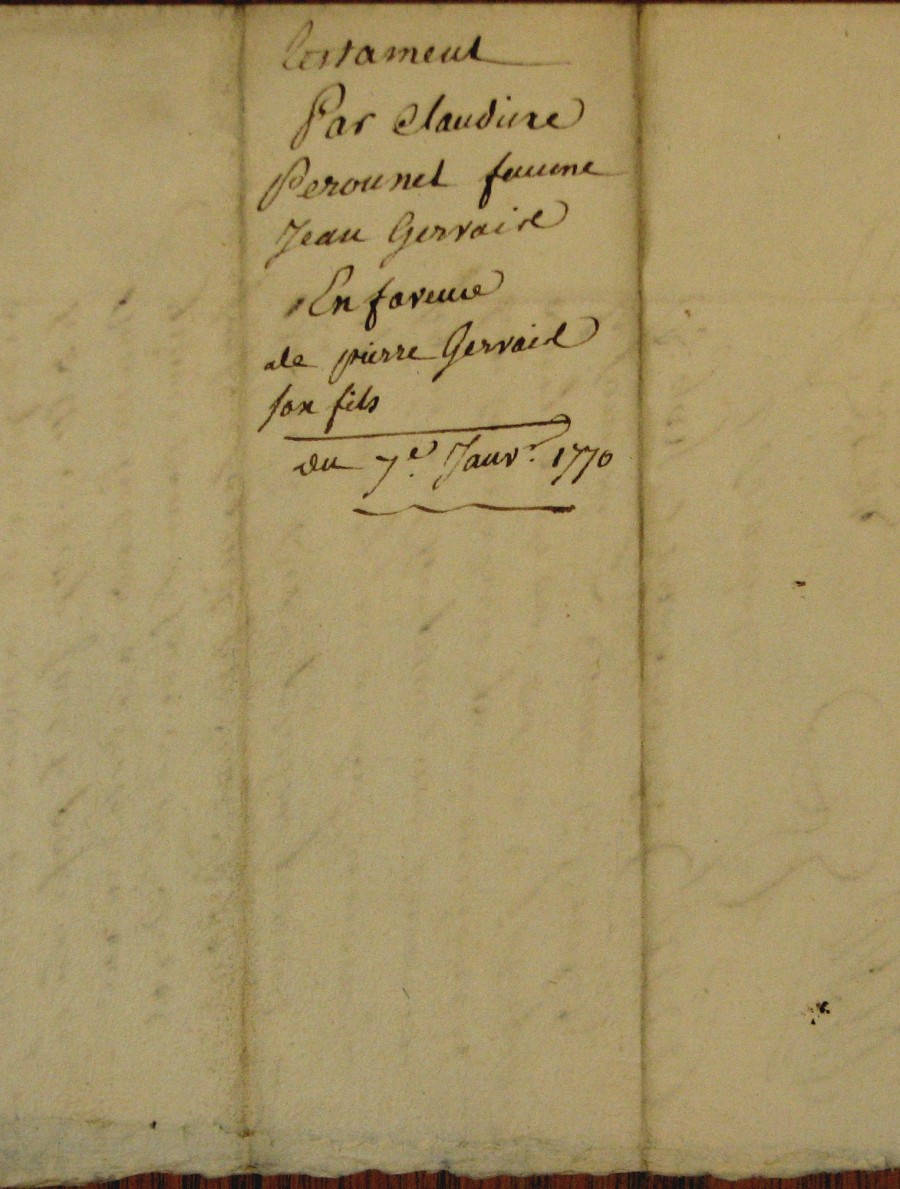 Testament
Par Claudine
Perounel femme
Jean Gervaise
En faveur
de pierre Gervaise
son fils
du 7e. Janvr. 1770